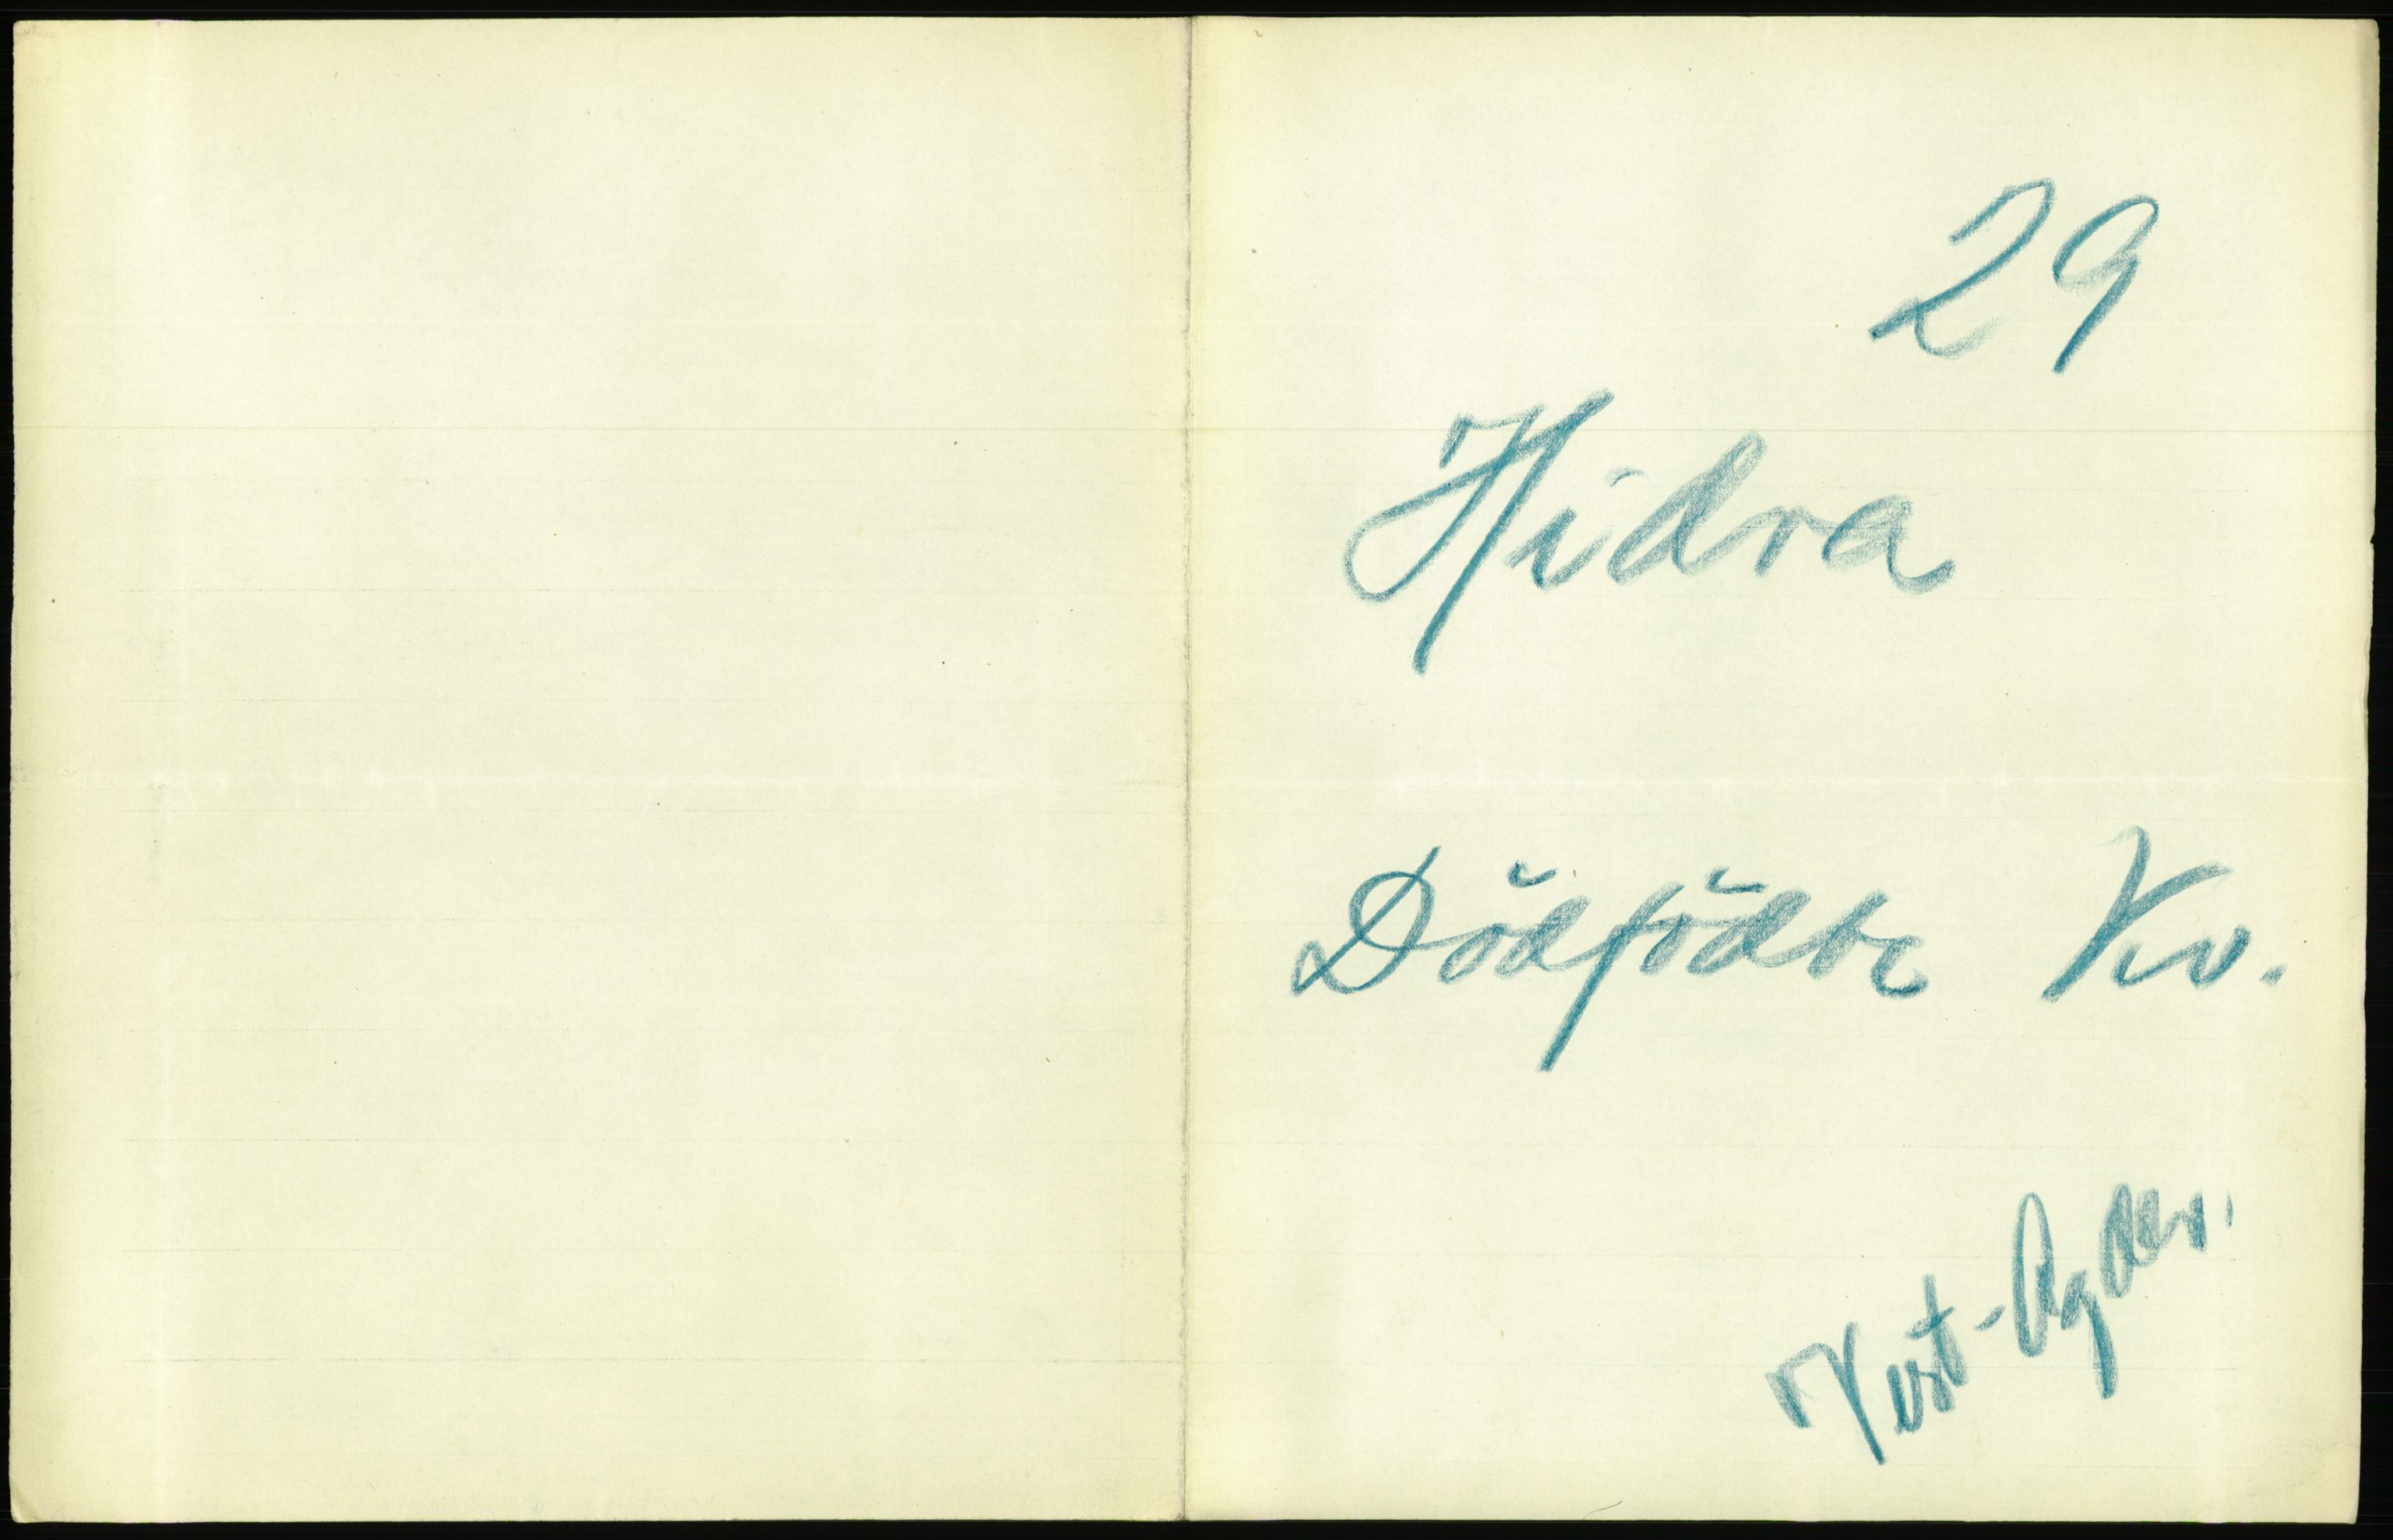 29
Hidra
Dödfödte Kv.
Vest-Agder.